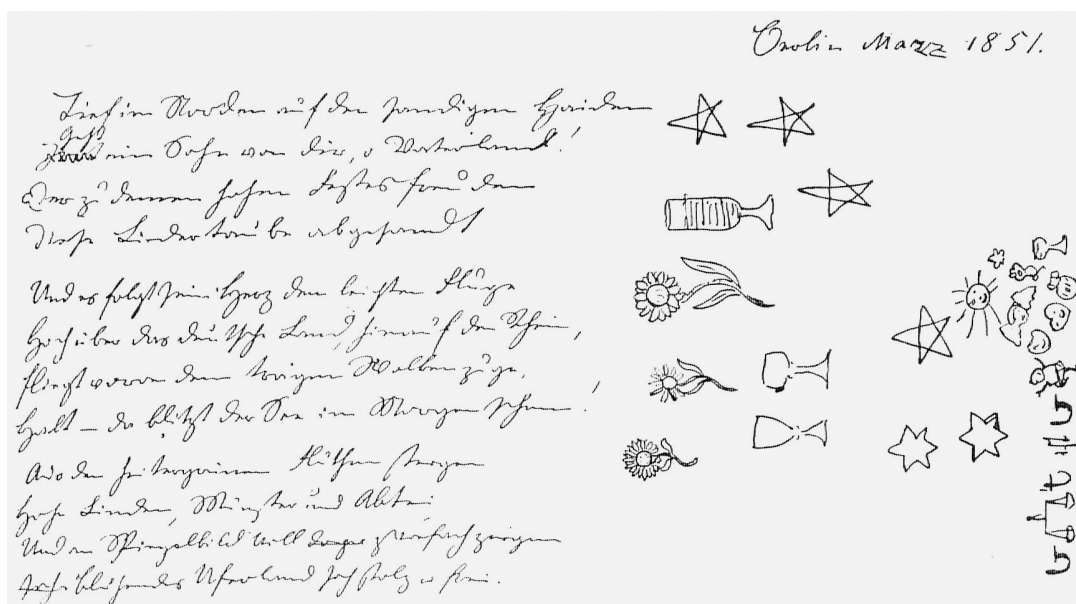 Berlin März 1851.
Tief im Norden auf den sandigen Haiden
Geht ein Sohn von dir, o Vaterland!
Der zu deinen hohen Festesfreuden
Diese Liedertaube abgesandt
Und es folgt sein Herz dem leichten Fluge
Hoch über das deutsche Land, hinauf den Rhein,
fliegt voran dem trägen Wolkenzuge,
Halt — da blitzt der See im Morgenschein!
Aus den heitergrünen Fluthen steigen
Hohe Linden, Münster und Abtei
Und im Spiegelbild will zwiefach zeigen
blühendes Uferland sich stolz u frei.